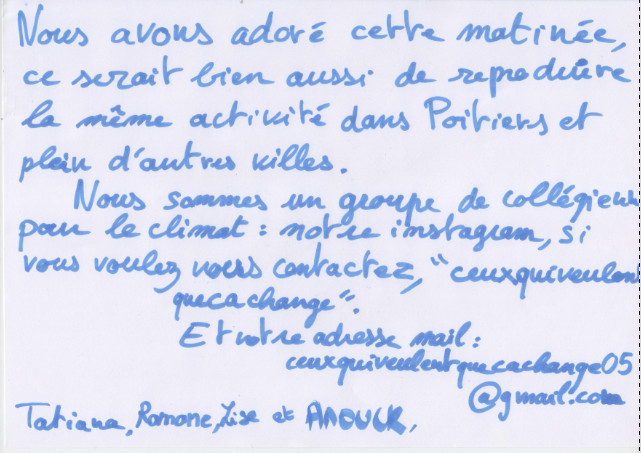 Nous avons adoré cette matinée,
ce serait bien aussi de reproduire
la même activité dans Poitiers et
plein d'autres villes.
Nous sommes un groupe de collégiens
pour le climat : notre instagram, si
vous voulez nous contactez, "ceuxquiveulent
quecachange".
Et notre adresse mail :
ceuxquiveulentquecachange05
@gmail.com
Tatiana, Romane, Lise et ANOUCK.